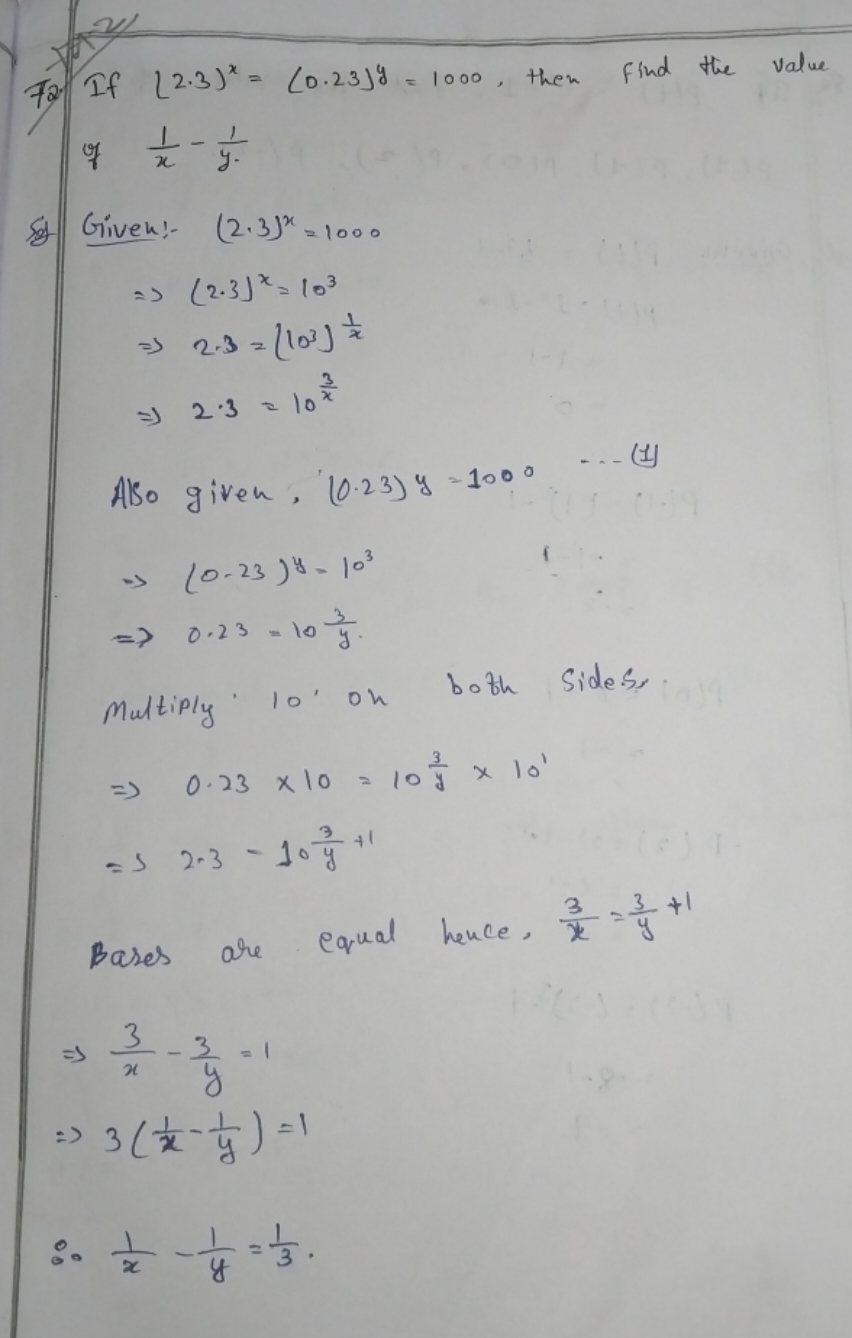 72 If (2.3)^x = (0.23)^y = 1000, then find the value
of 1/x - 1/y.
Sol Given:- (2.3)^x = 1000
=> (2.3)^x = 10^3
=> 2.3 = (10^3)^(1/x)
=> 2.3 = 10^(3/x)
--- (1)
Also given, (0.23) y = 1000
=> (0.23)^y = 10^3
=> 0.23 = 10^(3/y).
Multiply '10' on both sides,
=> 0.23 x 10 = 10^(3/y) x 10^1
=> 2.3 = 10^(3/y + 1)
Bases are equal hence, 3/x = 3/y + 1
=> 3/x - 3/y = 1
=> 3(1/x - 1/y) = 1
∴ 1/x - 1/y = 1/3.